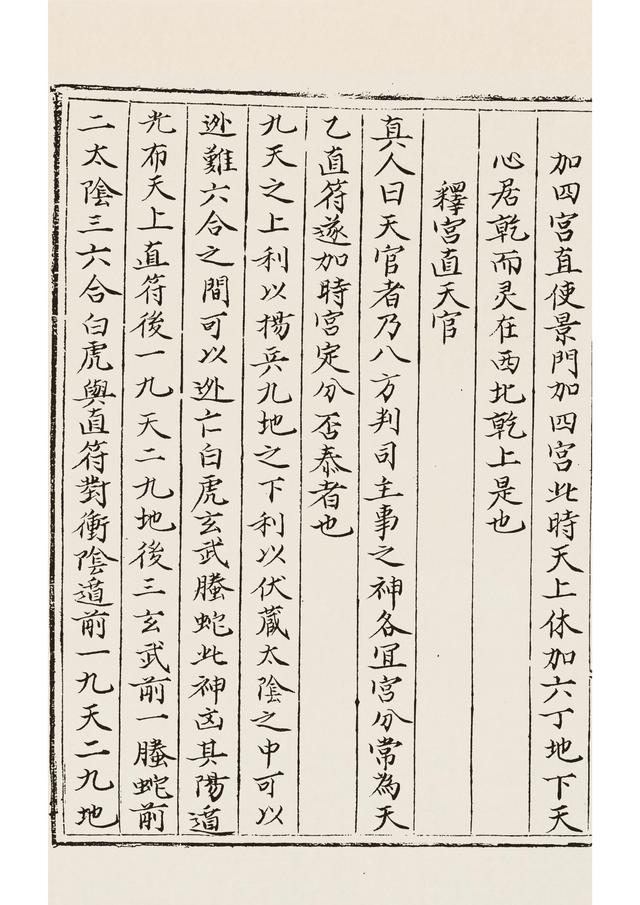 加四宮直使景門加四宮此時天上休加六丁地下天
心居乾而灵在西北乾上是也
釋宮直天官
真人曰天官者乃八方判司主事之神各冝宮分常為天
乙直符遂加時宮定分否泰者也
九天之上利以揚兵九地之下利以伏藏太陰之中可以
迯難六合之間可以迯亡白虎玄武螣蛇此神凶其陽遁
先布天上直符後一九天二九地後三玄武前一螣蛇前
二太陰三六合白虎與直符對衝陰遁前一九天二九地